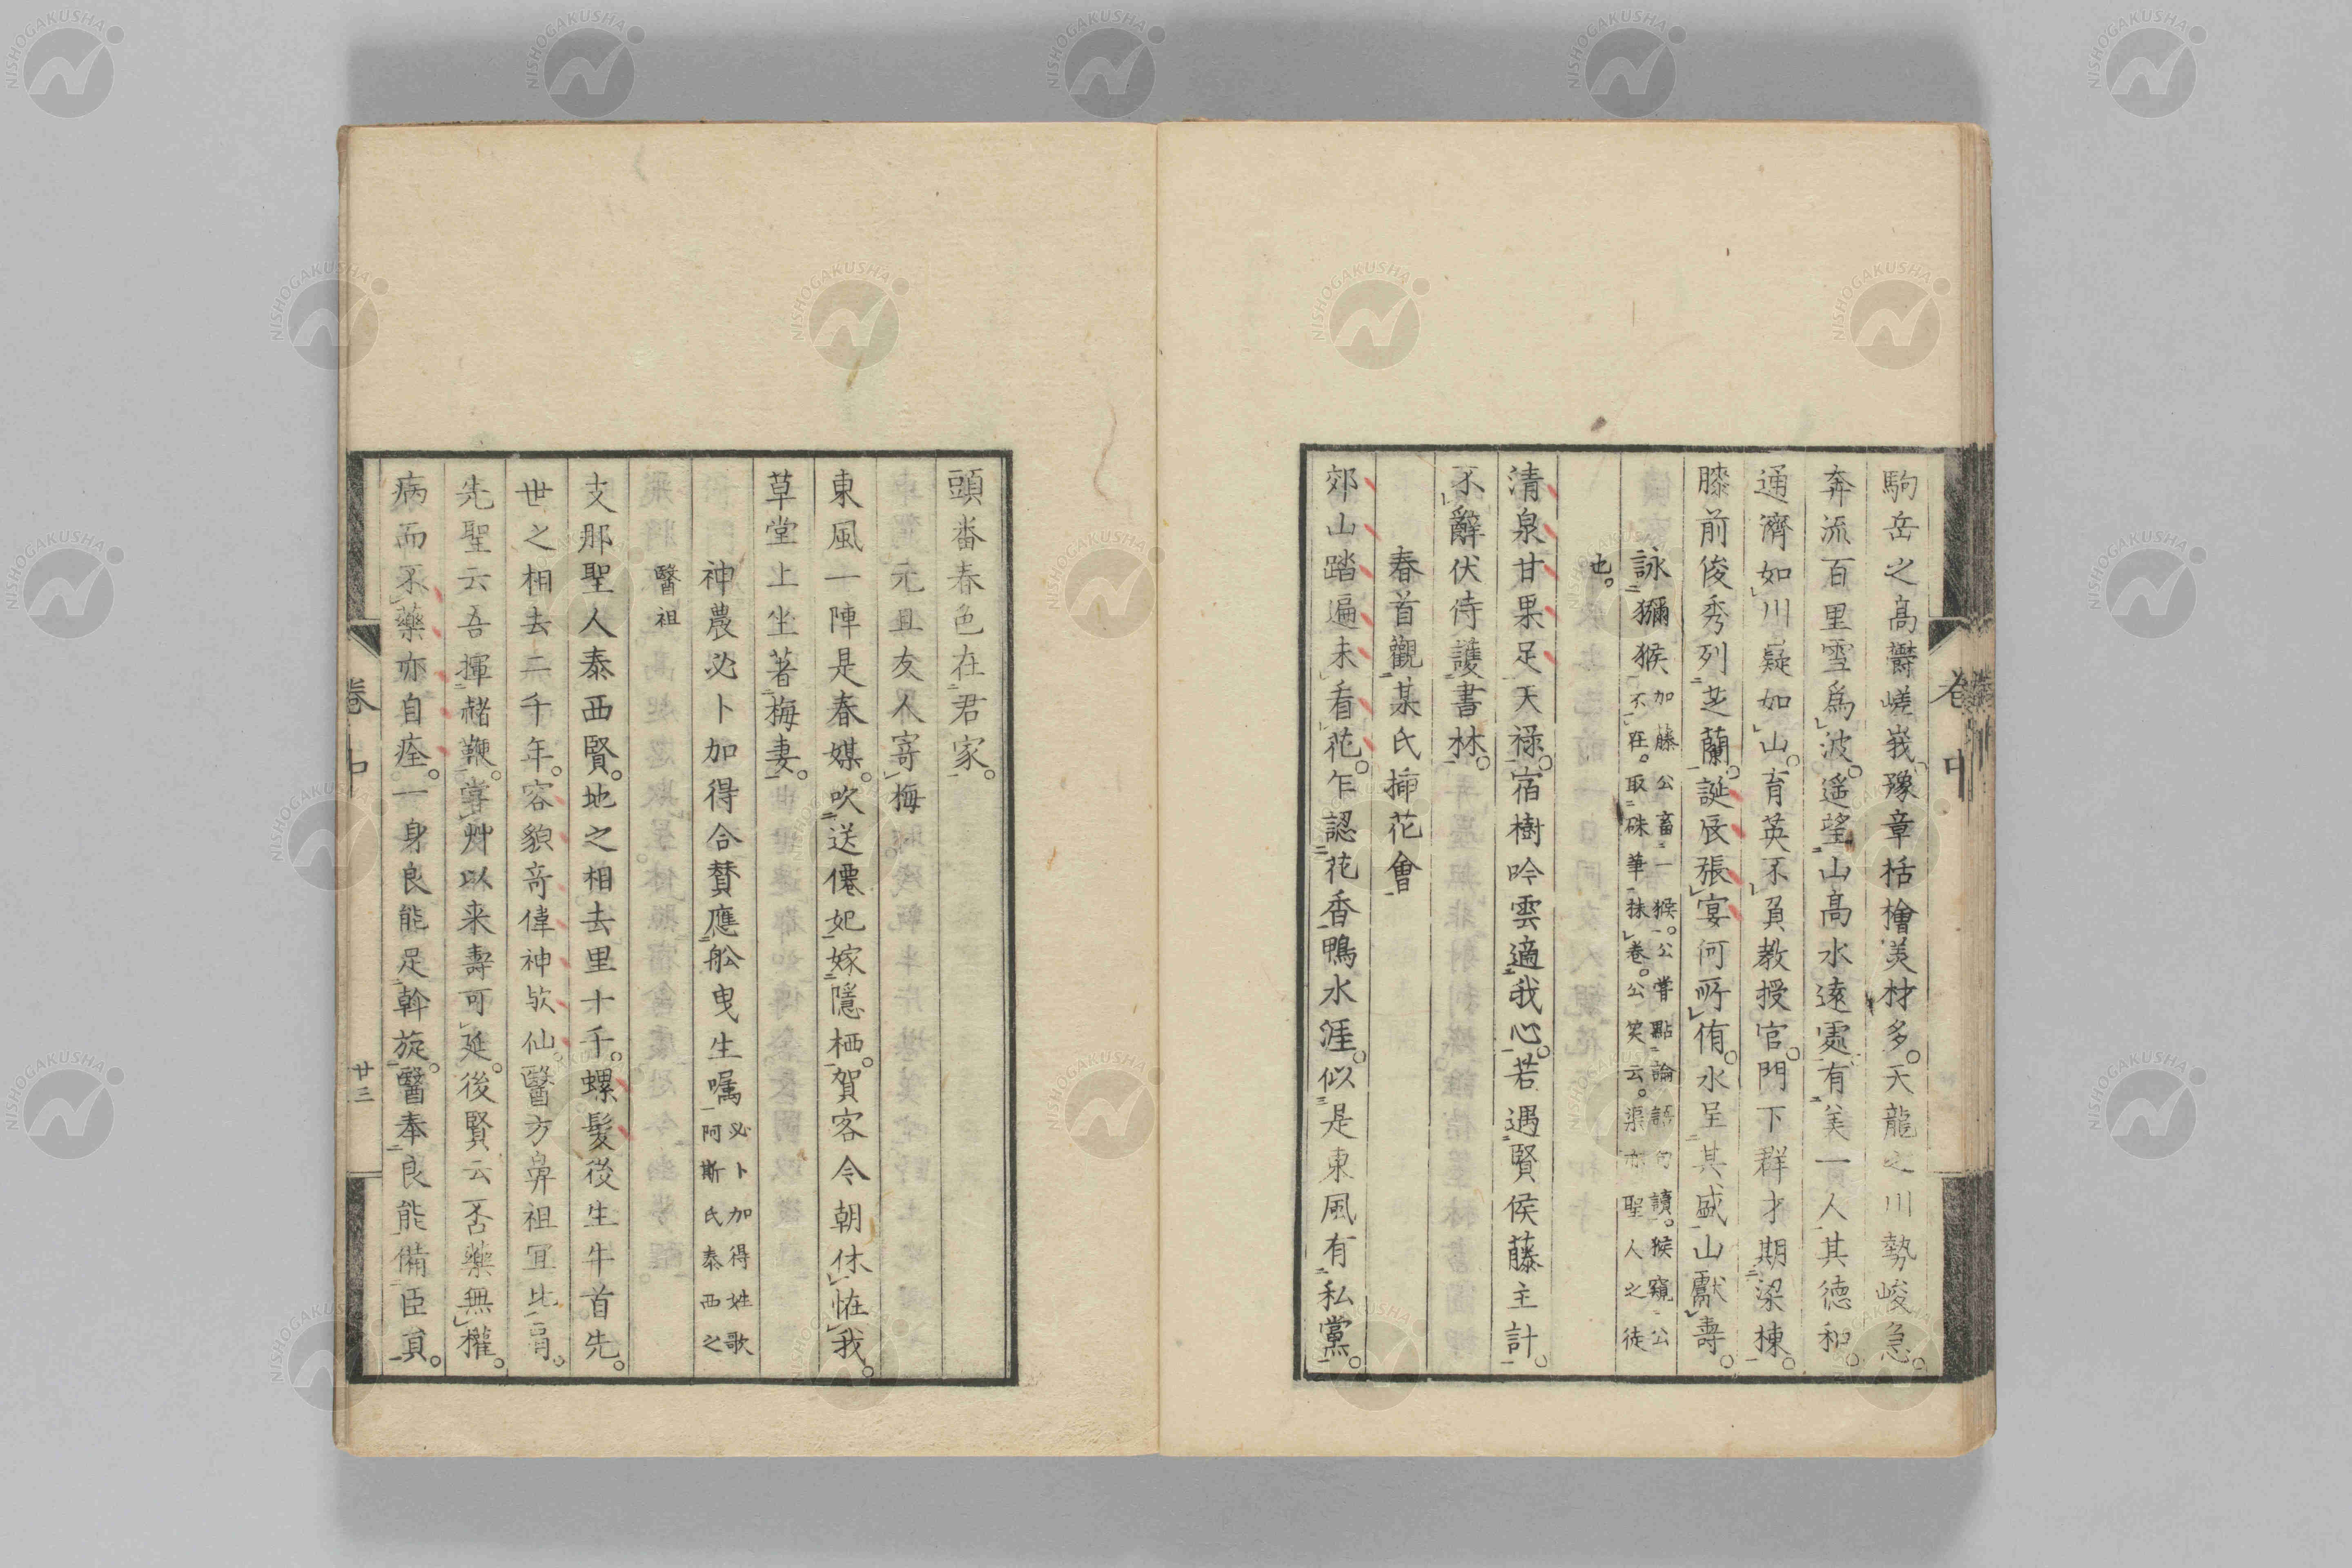 駒岳之高欝嵯峩豫章栝檜美材多天龍之川勢峻急
奔流百里雪爲波遥望山高水遠處有美一人其德和
通濟如川嶷如山育英不負教授官門下群才期梁棟
膝前俊秀列芝蘭誕辰張宴何所侑水呈其盛山獻壽
詠獼猴加藤公畜一猴公嘗點論語句讀猴窺公
不在取硃筆抹卷公笑云渠亦聖人之徒
也
清泉甘果足天禄宿樹吟雲適我心若遇賢侯藤主計
不辭伏侍護書林
春首觀某氏挿花會
郊山踏遍未看花乍認花香鴨水涯似是東風有私黨
頭番春色在君家
元旦友人寄梅
東風一陣是春媒吹送僊妃嫁隱栖賀客今朝休恠我
草堂上坐著梅妻
神農必卜加得合賛應舩曳生嘱必卜加得姓歌
阿斯氏泰西之
醫祖
支那聖人泰西賢地之相去里十千螺髮後生牛首先
世之相去二千年容貌奇偉神歟仙醫方鼻祖宜比肩
先聖云吾揮赭鞭嘗艸以来壽可延後賢云否藥無權
病而不藥亦自痊一身良能足斡旋醫奉良能備臣員
卷中
廿三
卷中
NISHOGAKUSHA